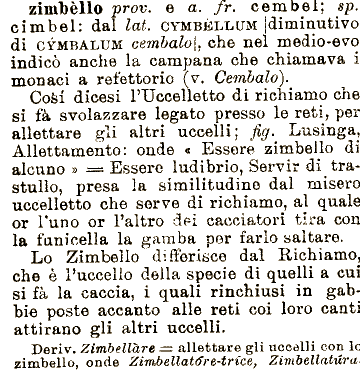 zimbèllo prov. e a. fr. cembel; sp.
cimbel: dal lat. CYMBÉLLUM [diminutivo
di CÝMBALUM cembalo], che nel medio-evo
indicò anche la campana che chiamava i
monaci a refettorio (v. Cembalo).
Così dicesi l'Uccelletto di richiamo che
si fà svolazzare legato presso le reti, per
allettare gli altri uccelli; fig. Lusinga,
Allettamento: onde « Essere zimbello di
alcuno » = Essere ludibrio, Servir di tra-
stullo, presa la similitudine dal misero
uccelletto che serve di richiamo, al quale
or l'uno or l'altro dei cacciatori tira con
la funicella la gamba per farlo saltare.
Lo Zimbello differisce dal Richiamo,
che è l'uccello della specie di quelli a cui
si fà la caccia, i quali rinchiusi in gab-
bie poste accanto alle reti coi loro canti
attirano gli altri uccelli.
Deriv. Zimbellàre = allettare gli uccelli con lo
zimbello, onde Zimbellatóre-trice, Zimbellatúra.